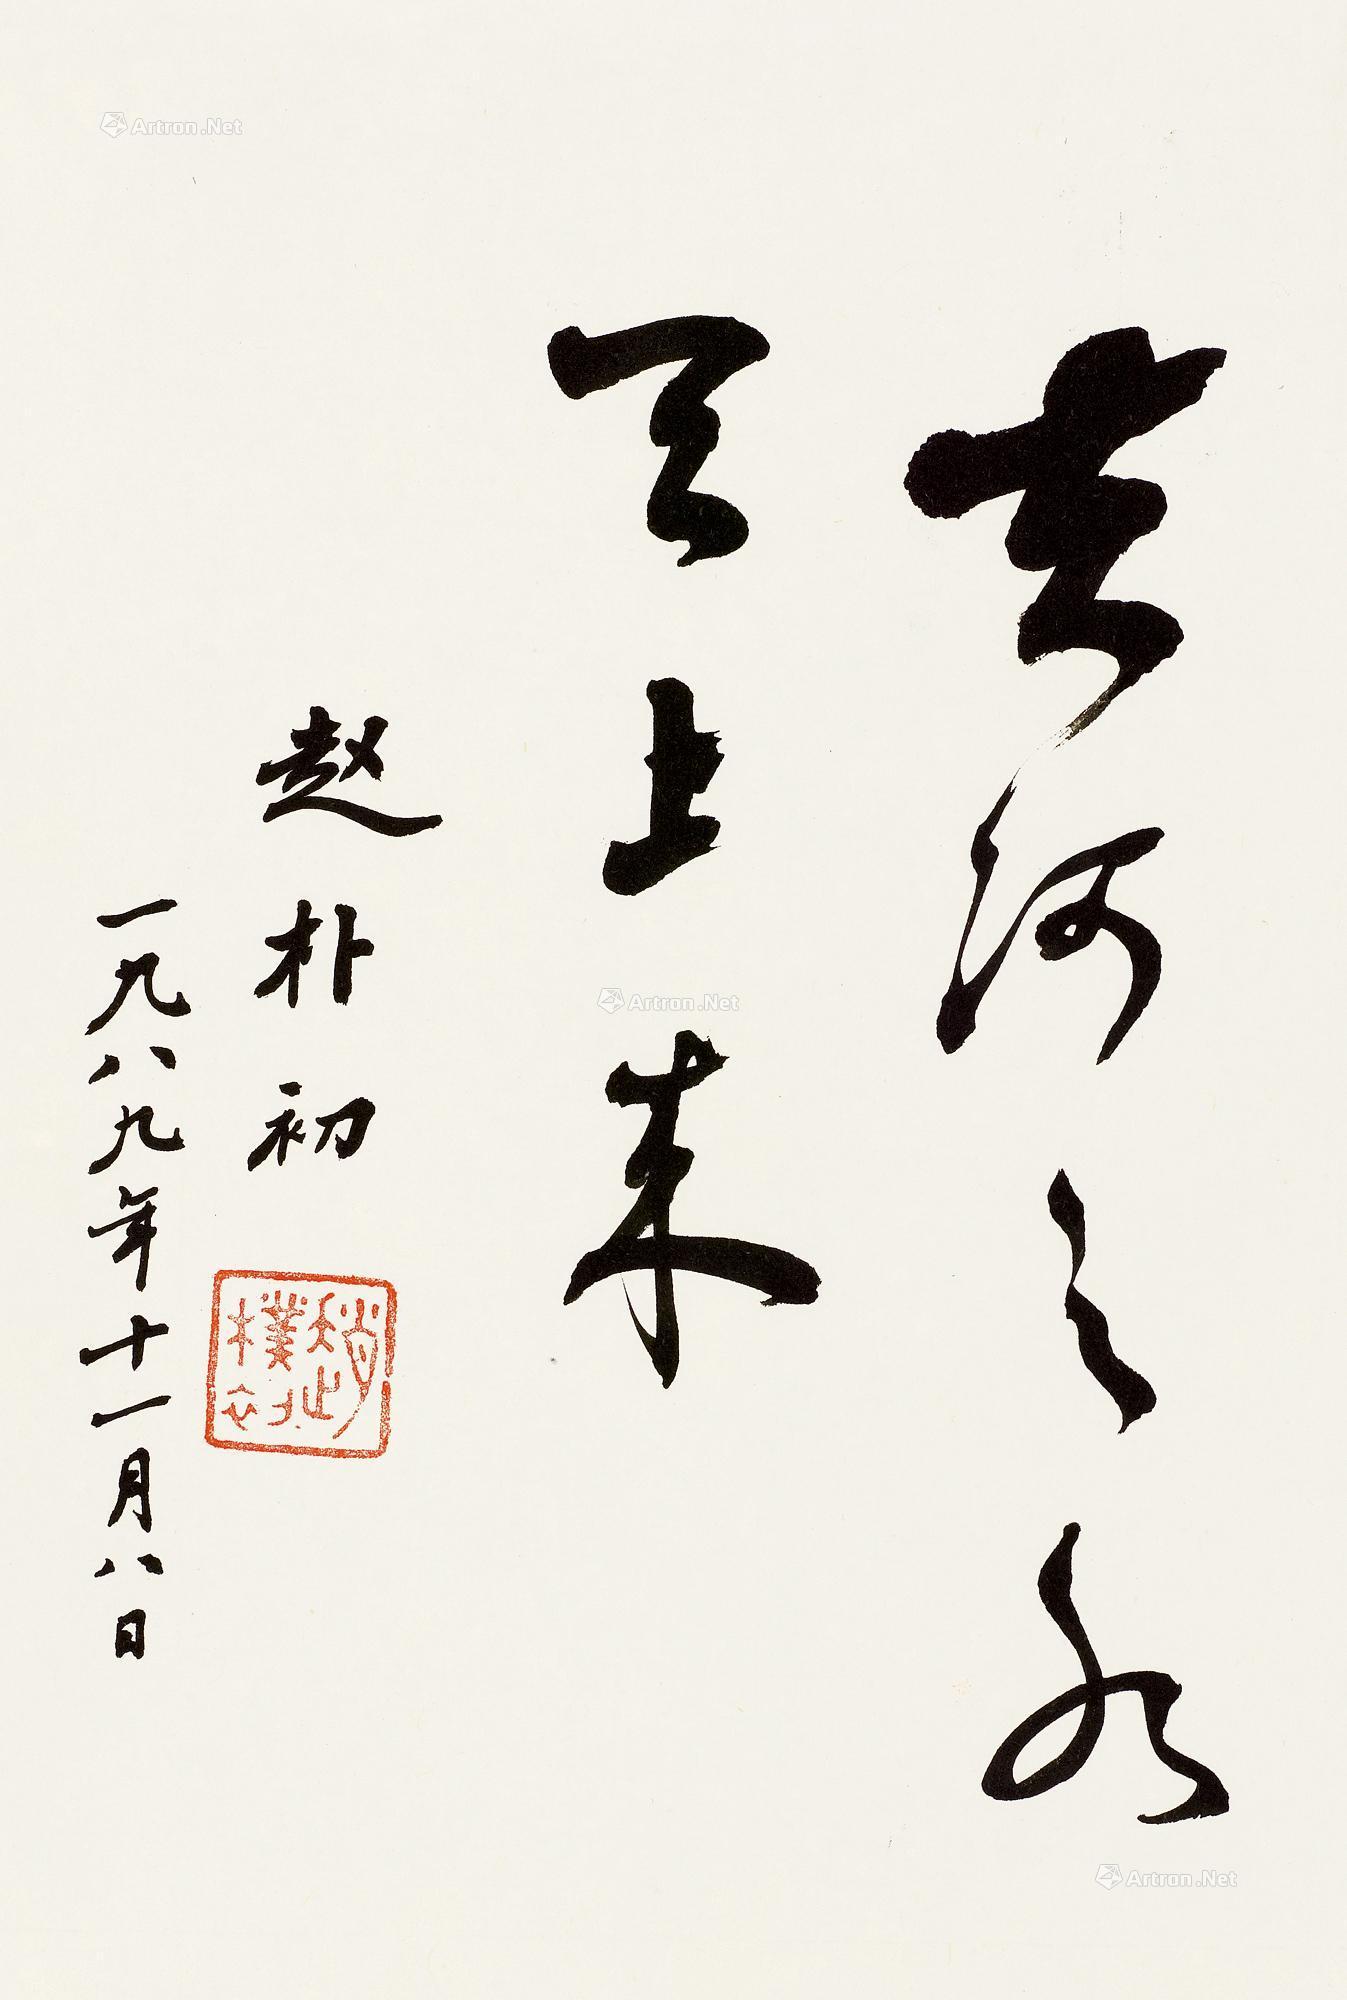 黄河之水
天上来
赵朴初
一九八九年十一月八日
趙樸初
Artron.Net
Artron.Net
Artron.Net